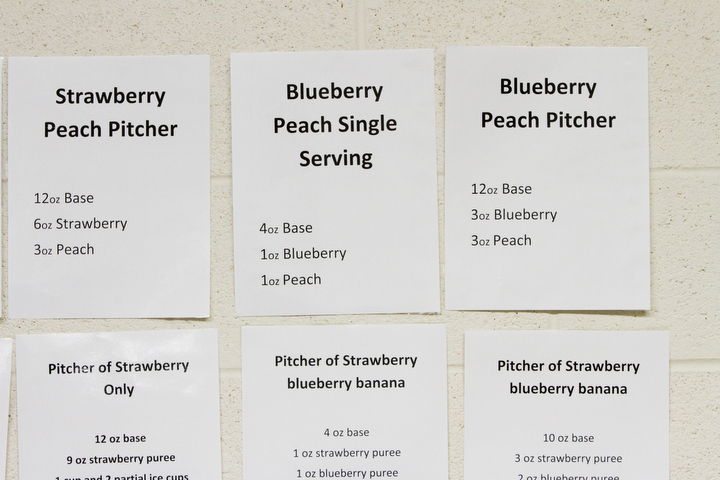 Strawberry
Peach Pitcher
12oz Base
6oz Strawberry
3oz Peach
Blueberry
Peach Single
Serving
4oz Base
1oz Blueberry
1oz Peach
Blueberry
Peach Pitcher
12oz Base
3oz Blueberry
3oz Peach
Pitcher of Strawberry
Only
12 oz base
9 oz strawberry puree
1 cup and 2 partial ice cups
Pitcher of Strawberry
blueberry banana
4 oz base
1 oz strawberry puree
1 oz blueberry puree
Pitcher of Strawberry
blueberry banana
10 oz base
3 oz strawberry puree
2 oz blueberry puree